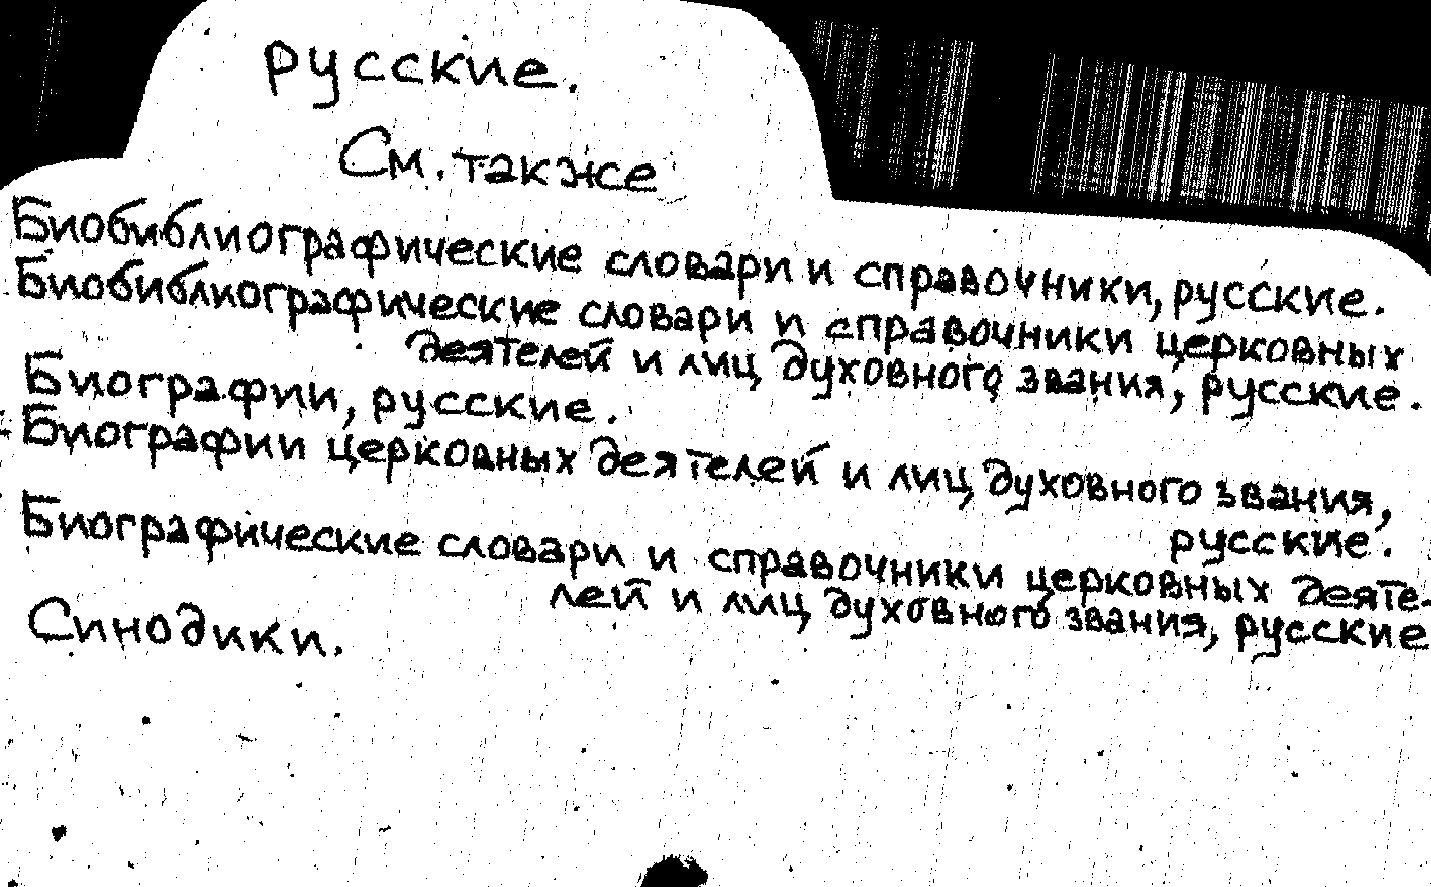 русские.
См. также
Биобиблиографические словари и справочники, русские.
Биобиблиографические словари и справочники церковных
деятелей и лиц духовного звания, русские.
Биографии, русские.
Биографии церковных деятелей и лиц духовного звания,
русские.
Биографические словари и справочники церковных деяте-
лей и лиц духовного звания, русские
Синодики.